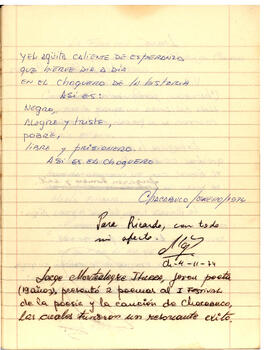 Y EL AGÜITA CALIENTE DE ESPERANZA
QUE HIERVE DIA A DIA
EN EL CHOQUERO DE LA HISTORIA
ASI ES:
NEGRO,
ALEGRE Y TRISTE,
POBRE,
LIBRE Y PRISIONERO.
ASI ES EL CHOQUERO
CHACABUCO/ENERO/1974
Para Ricardo, con todo
mi afecto.
Jorge Montealegre Iturra, joven poeta
(19 años), presentó 2 poemas al I FESTIVAL
de la poesía y la canción de Chacabuco,
los cuales tuvieron un resonante éxito.